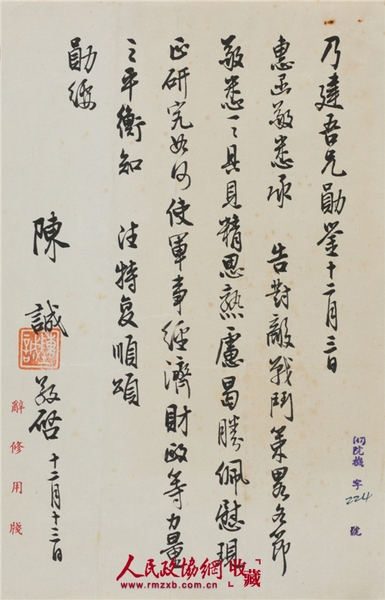 乃建吾兄勛鑒十二月三日
惠函敬悉承　告對敵戰鬥策畧各節
敬悉一一具見精思熟慮曷勝佩慰現
正研究如何使軍事經濟財政等力量
之平衡知　注特复順頌
勛綏
陳　誠　敬啓　十二月十三日
陳誠
辭修用牋
字 224 號
人民政協網 收藏
www.rmzxb.com.cn